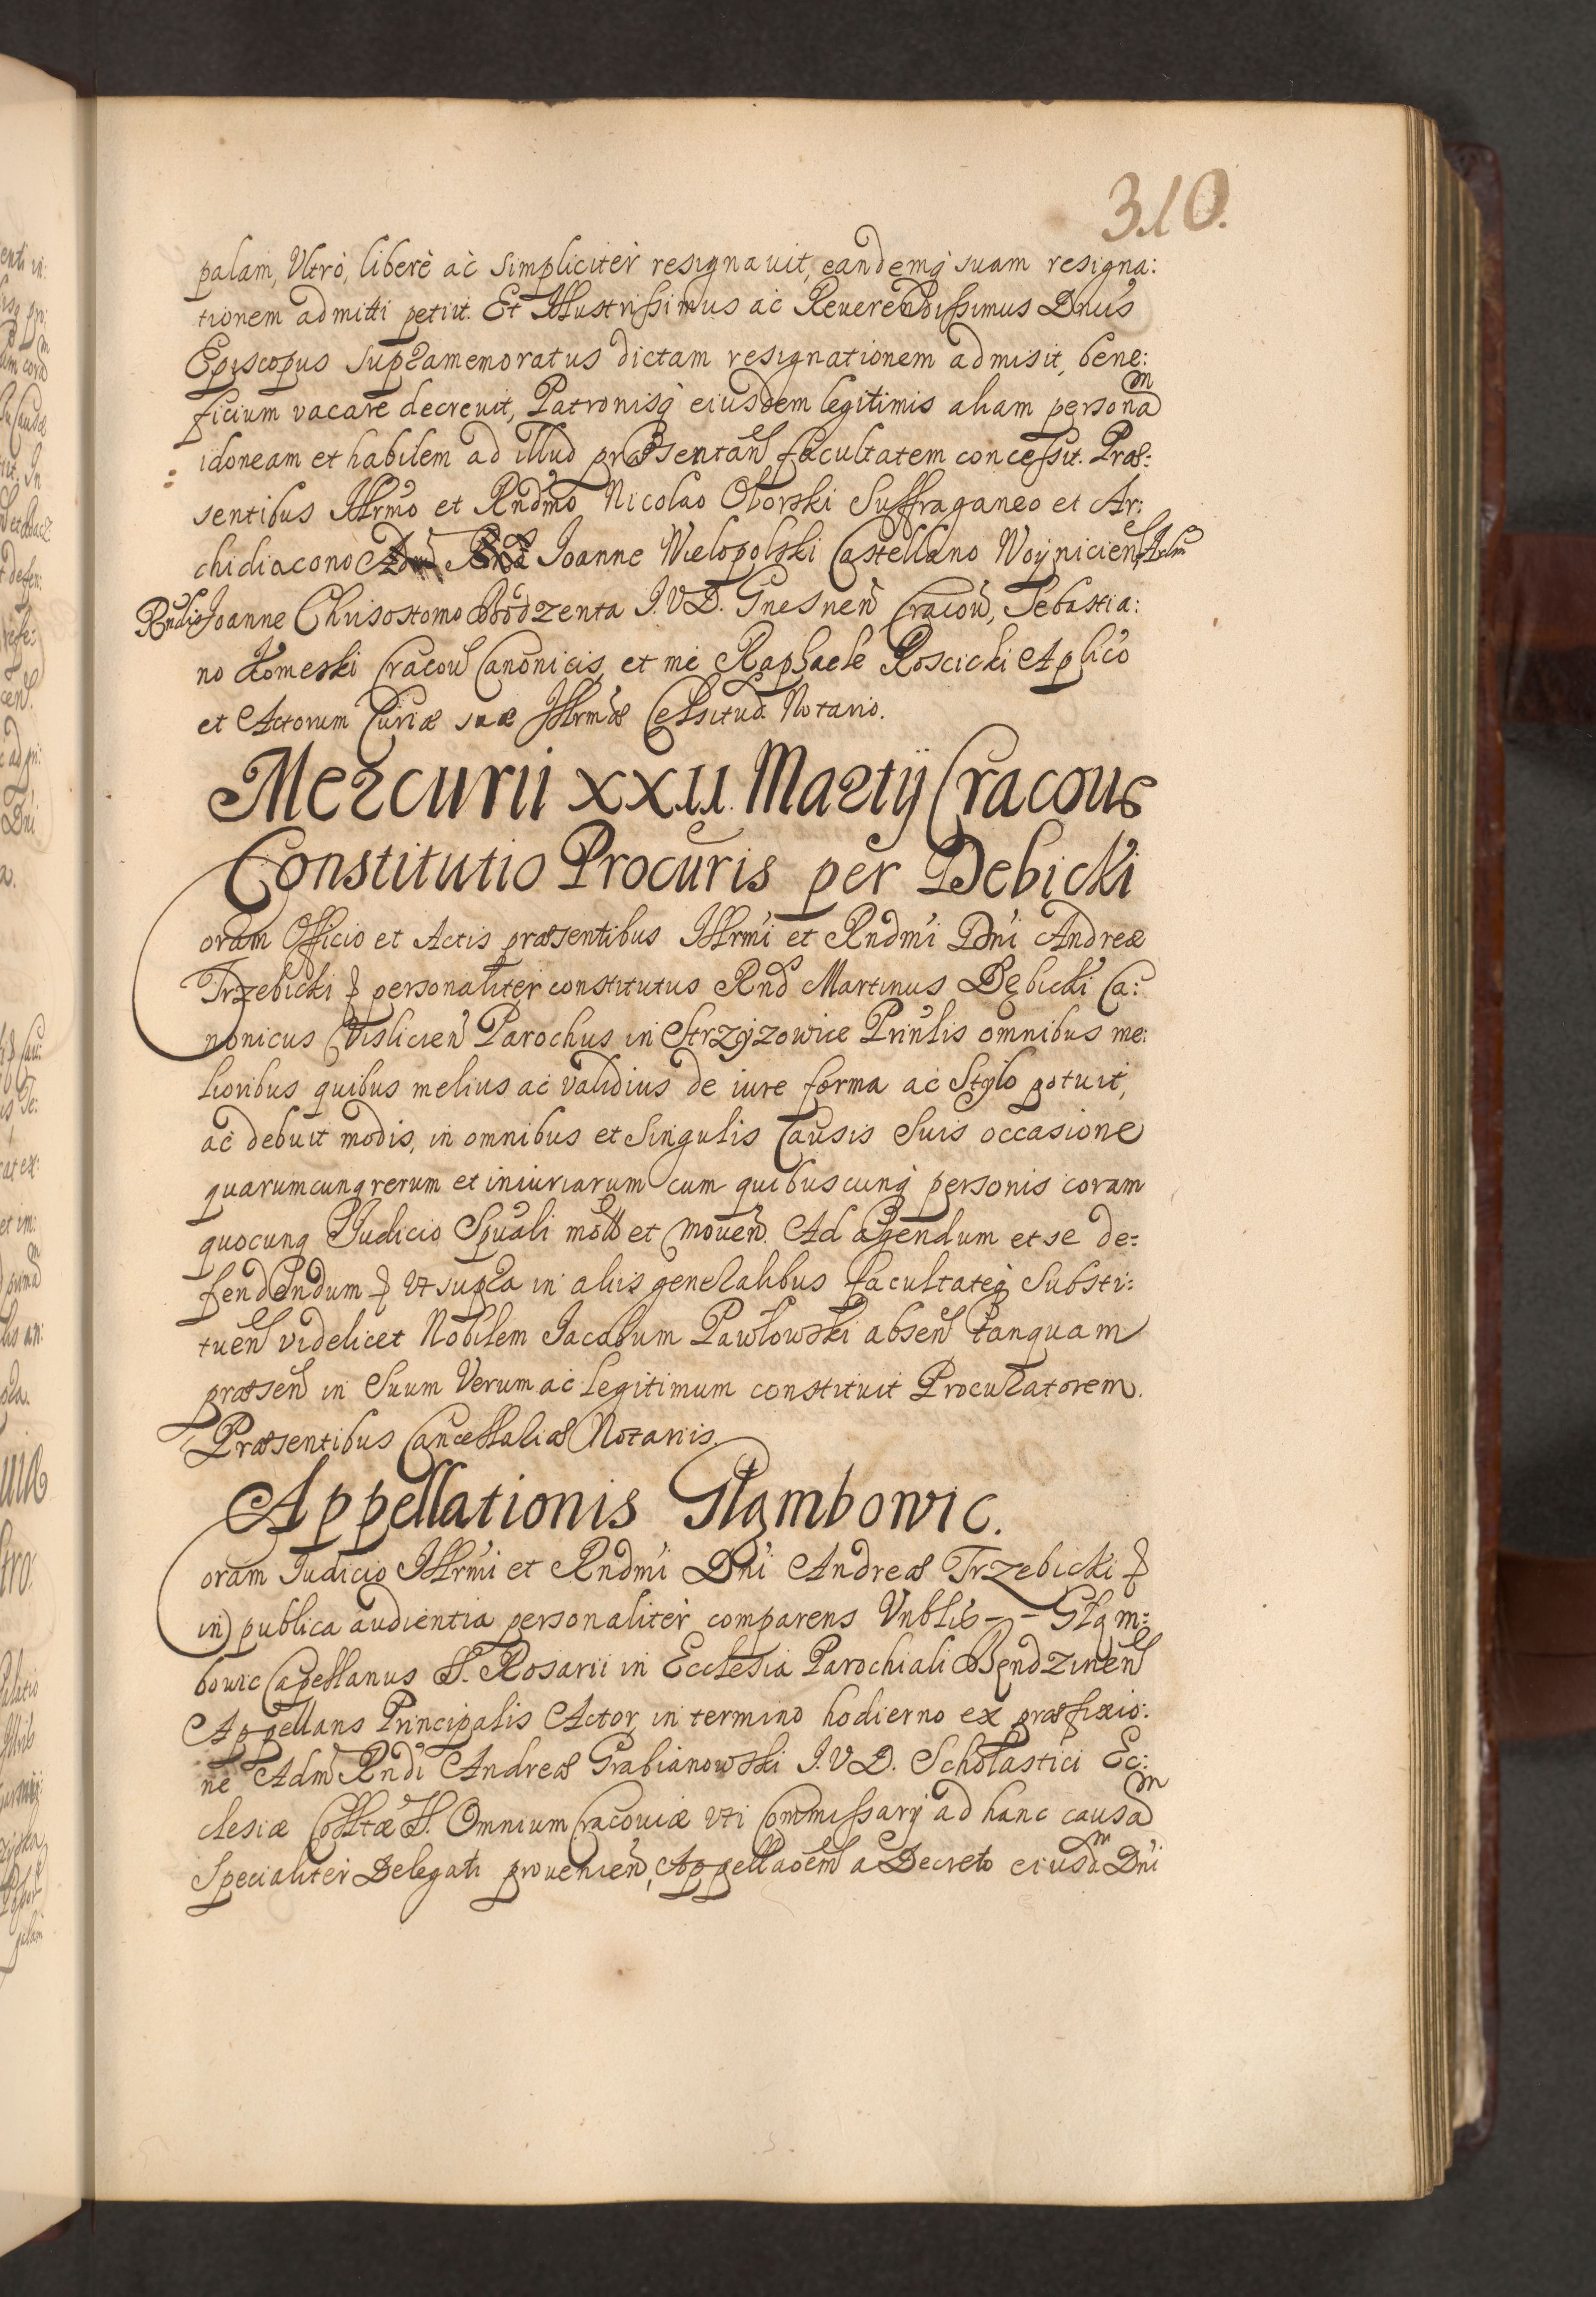 310.
palam, Ultrò, liberè ac simpliciter resignauit, eandemq suam resigna:
tionem admitti petiit. Et Illustrissimus ac Reuerendissimus Dnus
Episcopus supramemoratus dictam resignationem admisit, bene:
ficium vacare decreuit, Patronisq eiusdem legitimis aliam personam
idoneam et habilem ad illud præsentan facultatem concessit. Præ:
sentibus Illrmo et Rndmo Nicolao Oborski Suffraganeo et Ar:
chidiacono Ioanne Wielopolski Castellano Woyniciens Adm
Rndis Ioanne Chrisostomo Bodzenta I.V.D. Gnesnen Cracou, Sebastia:
no Komeski Cracou Canonicis, et me Raphaele Roscicki Aplico
et Actorum Curiæ suæ Illrmæ Celsitud Notario.
Mercurii XXII. Martij Cracouiæ
Constitutio Procuris per Debicki
Coram Officio et Actis præsentibus Illrmi et Rndmi Dni Andreæ
Trzebicki & personaliter constitutus Rnd Martinus Dębicki Ca:
nonicus Vislicien Parochus in Strzyzowice Prinlis omnibus me:
lioribus quibus melius ac validius de iure forma ac Stylo potuit,
ac debuit modis, in omnibus et Singulis Causis Suis occasione
quarumcunq rerum et iniuriarum cum quibuscunq personis coram
quocunq Iudicio Spuali motis et mouen. Ad Agendum et se de:
fendendum & vt supra in aliis generalibus facultateq Substi:
tuen videlicet Nobilem Iacobum Pawłowski absen tanquam
præsen in Suum Verum ac Legitimum constituit Procuratorem.
Præsentibus Cancellariæ Notariis.
Appellationis Głąmbowic.
Coram Iudicio Illrmi et Rndmi Dni Andreæ Trzebicki &
in publica audientia personaliter comparens Vnblis - - Głąm:
bowic Capellanus S. Rosarii in Ecclesia Parochiali Bendzinen
Appellans Principalis Actor, in termino hodierno ex præfixio:
ne Adm Rndi Andreæ Grabianowski I.V.D. Scholastici Ec:
clesiæ Colltæ S. Omnium Cracouiæ vti Commissary ad hanc causam
Specialiter Delegati prouenien, Appellaoem a Decreto eiusdm Dni